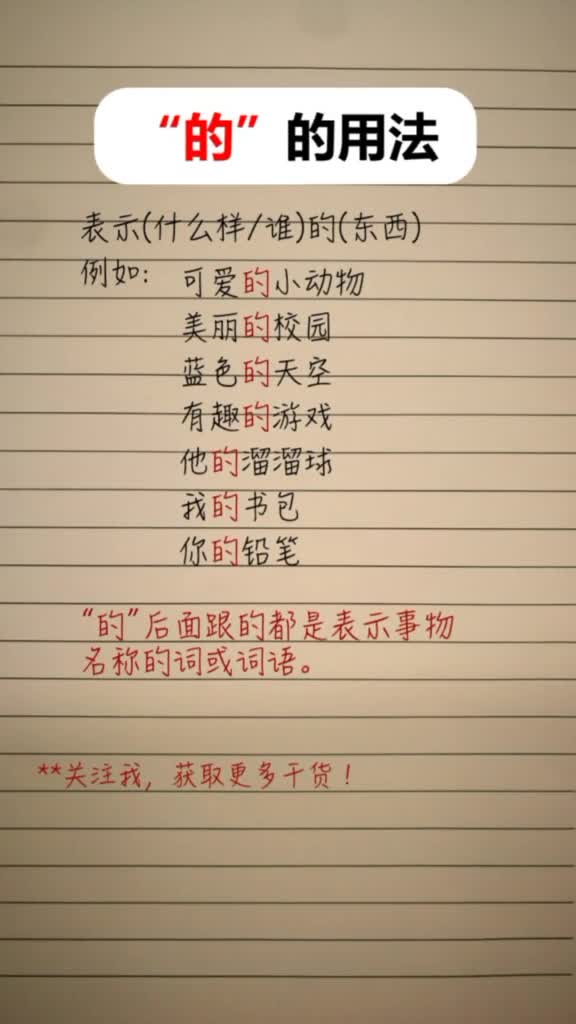 “的”的用法
表示(什么样/谁)的(东西)
例如: 可爱的小动物
美丽的校园
蓝色的天空
有趣的游戏
他的溜溜球
我的书包
你的铅笔
“的”后面跟的都是表示事物
名称的词或词语。
**关注我, 获取更多干货!